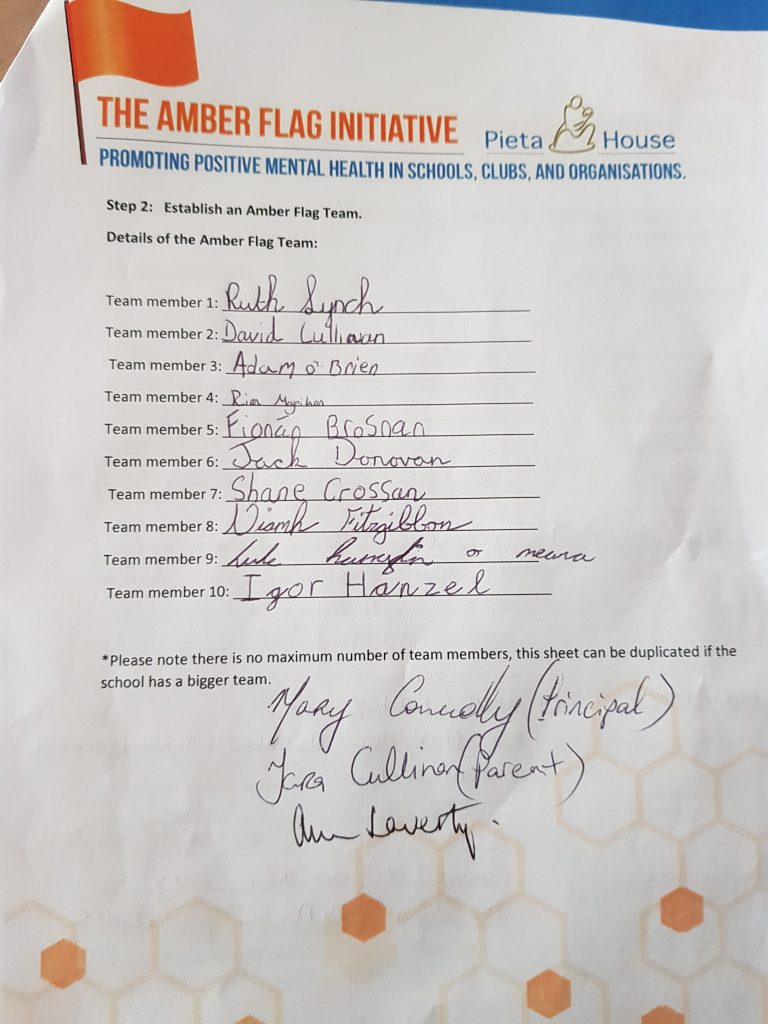 THE AMBER FLAG INITIATIVE
Pieta House
PROMOTING POSITIVE MENTAL HEALTH IN SCHOOLS, CLUBS, AND ORGANISATIONS.
Step 2: Establish an Amber Flag Team.
Details of the Amber Flag Team:
Team member 1: Ruth Lynch
Team member 2: David Cullinan
Team member 3: Adam O'Brien
Team member 4:
Team member 5: Fionán Brosnan
Team member 6: Jack Donovan
Team member 7: Shane Crossan
Team member 8: Niamh Fitzgibbon
Team member 9: Luke or
Team member 10: Igor Hanzel
*Please note there is no maximum number of team members, this sheet can be duplicated if the
school has a bigger team.
Mary Connolly (Principal)
Tara Cullinan (Parent)
Ann Laverty.